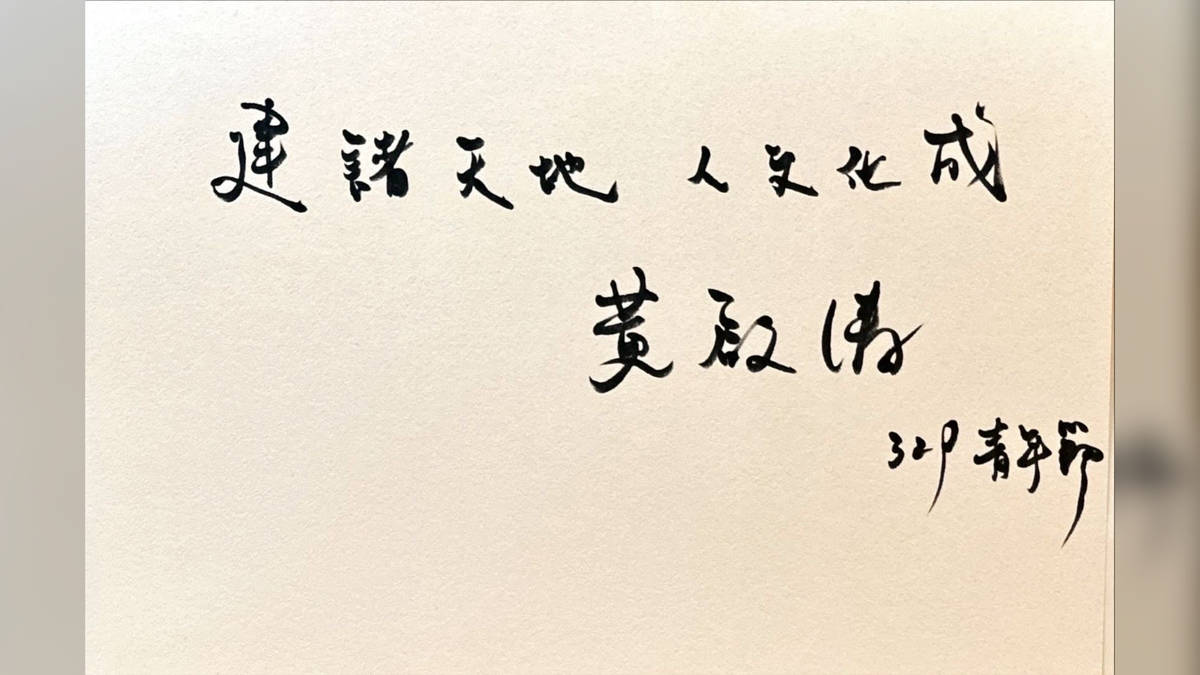 建諸天地 人文化成
黃啟濤
329青年節